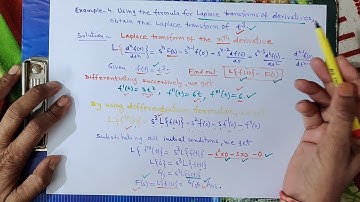 Example-4. Using the formula for Laplace transforms of derivatives,
obtain the Laplace transform of t³.
Solution - Laplace transform of the nth derivative
Given f(t) = t³. Find out L{f(t)} = F(s)
Differentiating successively, we get
f'(t) = 3t², f''(t) = 6t, f'''(t) = 6
By using differentiation formula, we
L{f'''(t)} = s³L{f(t)} - s²f(0) - sf'(0) - f''(0)
Substituting all initial conditions, we get
L{f'''(t)} = s³L{f(t)} - s²x0 - sx0 - 0
L{6} = s³L{f(t)}
6/s = s³L{f(t)}
F(s) = L{f(t)} = 6/s⁴